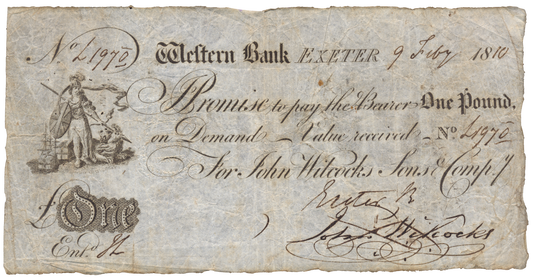 No L1970 Western Bank EXETER 9 Feby 1810
I Promise to pay the Bearer One Pound.
on Demand Value received No L1970
For John Wilcocks Sons & Compy
£One
Entd
Jno. Wilcocks